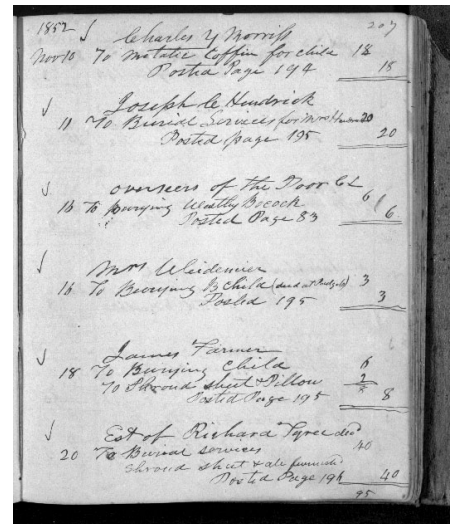 1852 207
Charles Y Morriss
Nov 10 To Metalic Coffin for child 18
Posted Page 194 18
Joseph C Hendrick
11 To Burial Services for Mrs 20
Posted page 195 20
overseers of the Poor CL
16 To Burying Westly Bocock 6
Posted Page 83 6
Mrs Weidemier
16 To Burying B child (died at 3
Posted 195 3
James Farmer
18 To Burying Child 6
To Shroud sheet & Pillow 2
Posted Page 195 8
Est of Richard Tyree decd
20 To Burial services 40
Shroud sheet &
Posted Page 196 40
95